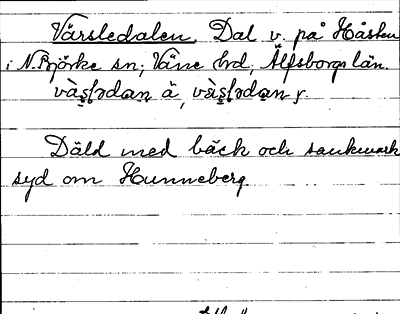 Värsledalen, Dal v. på Håsten
i N. Björke sn; Väne hrd, Älfsborgs län.
Däld med bäck och sankmark
syd om Hunneberg